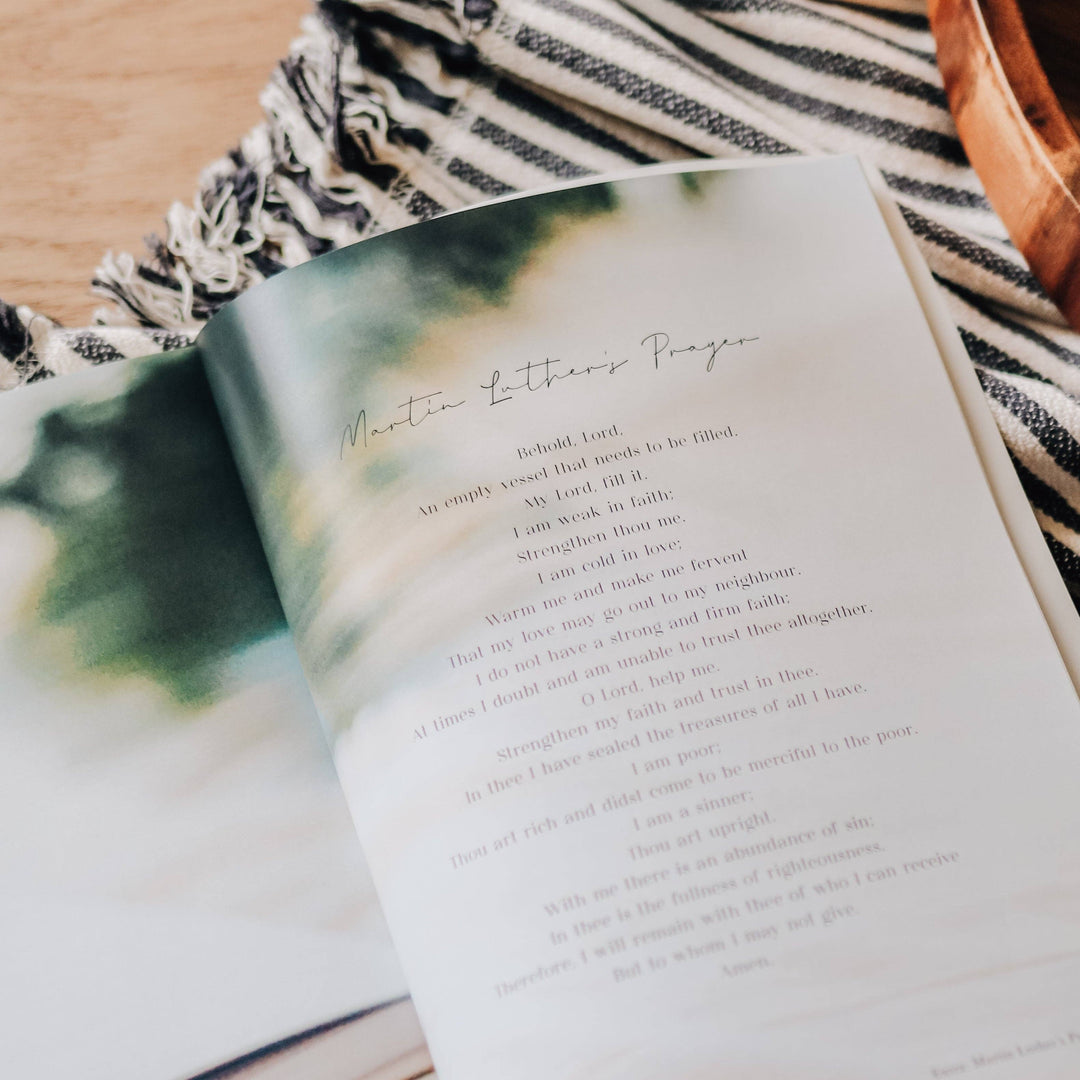 Martin Luther's Prayer
Behold, Lord,
An empty vessel that needs to be filled.
My Lord, fill it.
I am weak in faith;
Strengthen thou me.
I am cold in love;
Warm me and make me fervent
That my love may go out to my neighbour.
I do not have a strong and firm faith;
At times I doubt and am unable to trust thee altogether.
O Lord, help me.
Strengthen my faith and trust in thee.
In thee I have sealed the treasures of all I have.
I am poor;
Thou art rich and didst come to be merciful to the poor.
I am a sinner;
Thou art upright.
With me there is an abundance of sin;
In thee is the fullness of righteousness.
Therefore, I will remain with thee of who I can receive
But to whom I may not give.
Amen.